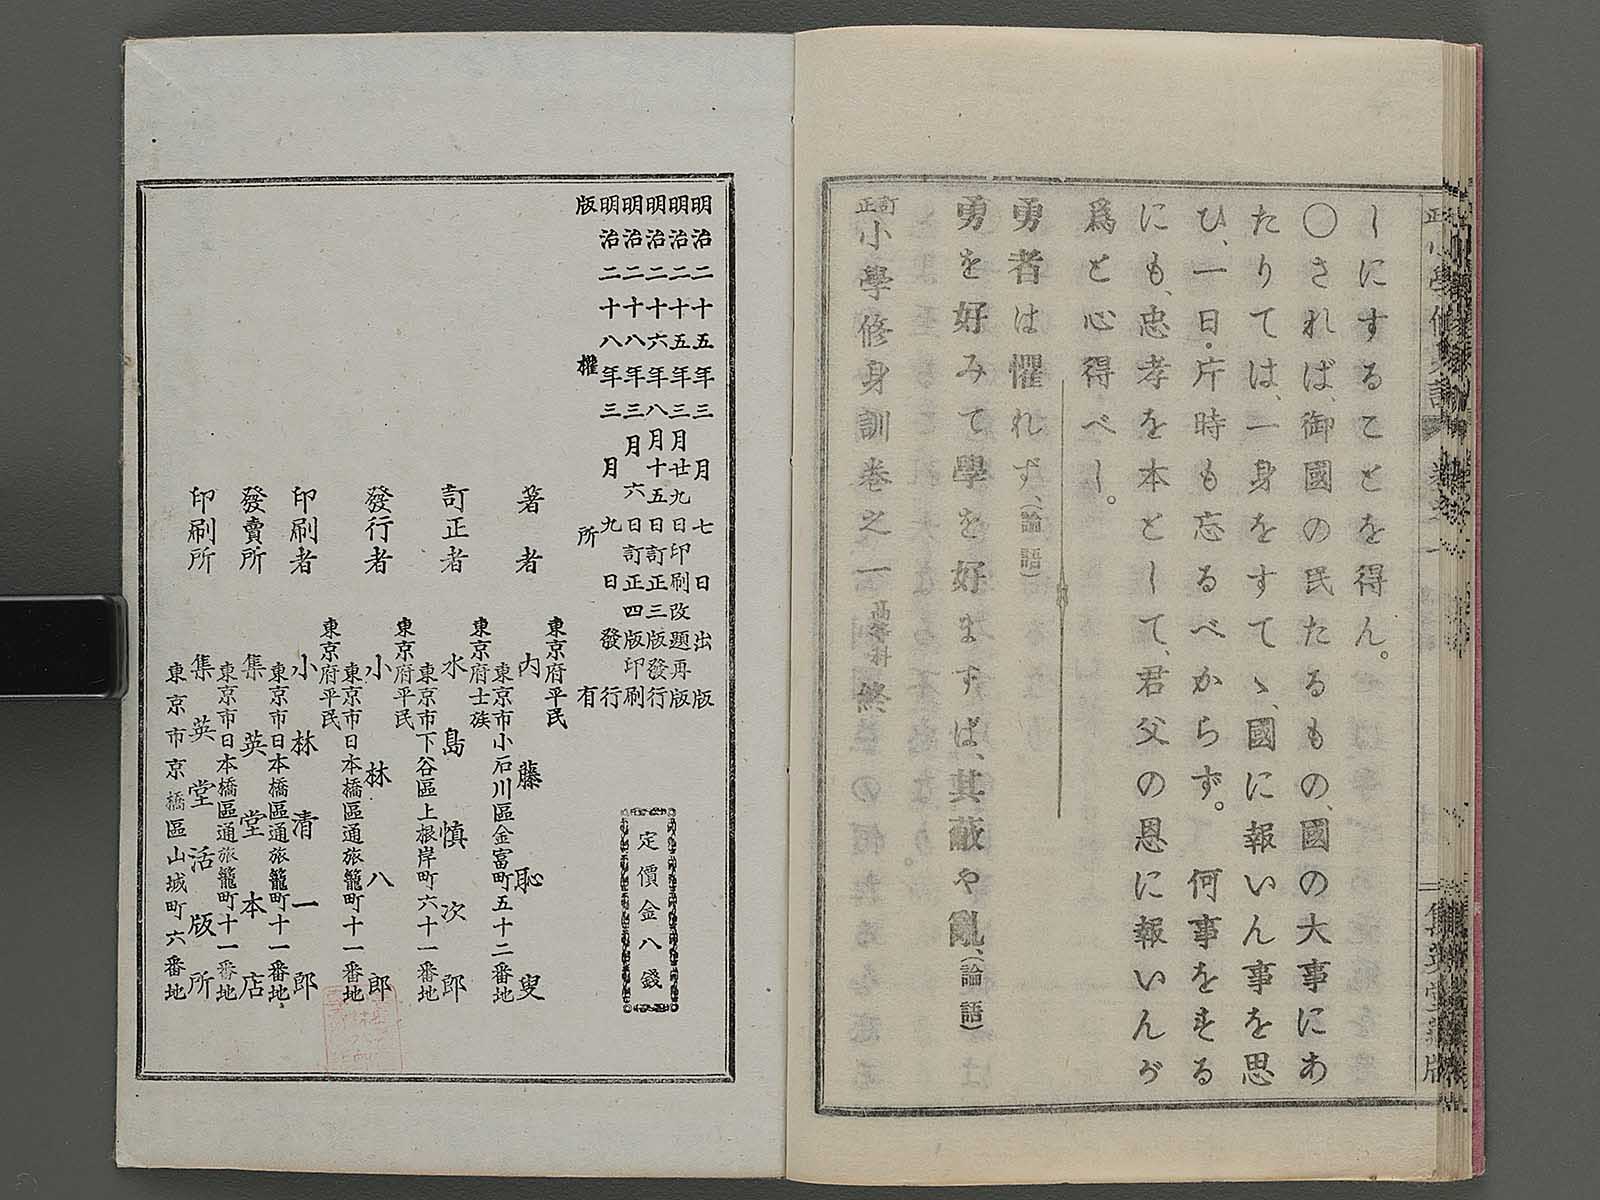 しにすることを得ん。
〇されば、御國の民たるもの、國の大事にあ
たりては、一身をすてゝ、國に報いん事を思
ひ、一日片時も忘るべからず。何事をするに
にも、忠孝を本として、君父の恩に報いんが
爲と心得べし。
勇者は懼れず、(論語)
勇を好みて學を好まずば、其蔽や亂、(論語)
訂正小學修身訓卷之一 高等科 終
明治二十五年三月七日出版
明治二十五年三月廿九日印刷改題再版
明治二十六年八月十五日訂正三版發行
明治二十八年三月六日訂正四版印刷
明治二十八年三月九日發行
版權所有
定價金八錢
東京府平民
著者 内藤恥叟
東京市小石川區金富町五十二番地
東京府士族
訂正者 水島愼次郎
東京市下谷區上根岸町六十一番地
東京府平民
發行者 小林八郎
東京市日本橋區通旅籠町十一番地
東京府平民
印刷者 小林清一郎
東京市日本橋區通旅籠町十一番地
發賣所 集英堂本店
東京市日本橋區通旅籠町十一番地
印刷所 集英堂活版所
東京市京橋區山城町六番地